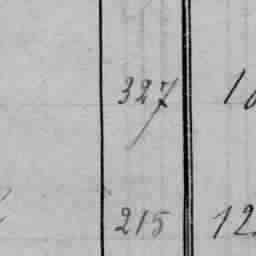 327
215 12